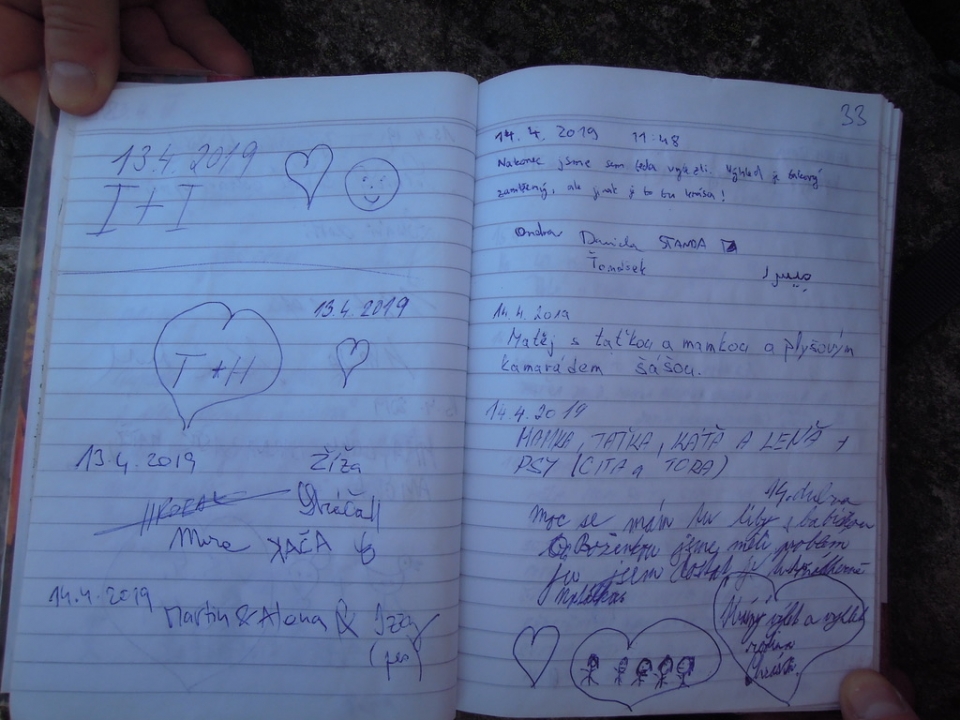 13.4.2019
I + I
13.4.2019
T + H
13.4.2019 Žíža
Mира KAČA
14.4.2019 Martin & Alena & Izzy
(pes)
33
14.4.2019 11:48
Nakonec jsme sem teda vylezli. Výhled je takový
zamlžený, ale jinak je to tu krása!
Ondra Daniela STANDA
Tomášek
14.4.2019
Matěj s taťkou a mamkou a plyšovým
kamarádem šášou.
14.4.2019
MAMKA, TAŤKA, KÁŤA A LENČA +
PSY (CITA a TORA)
14. dubna
Moc se mám tu líby s babičkou
Boženkou jsme měli problém
jsem
Krásný výlet a výhled
krása.